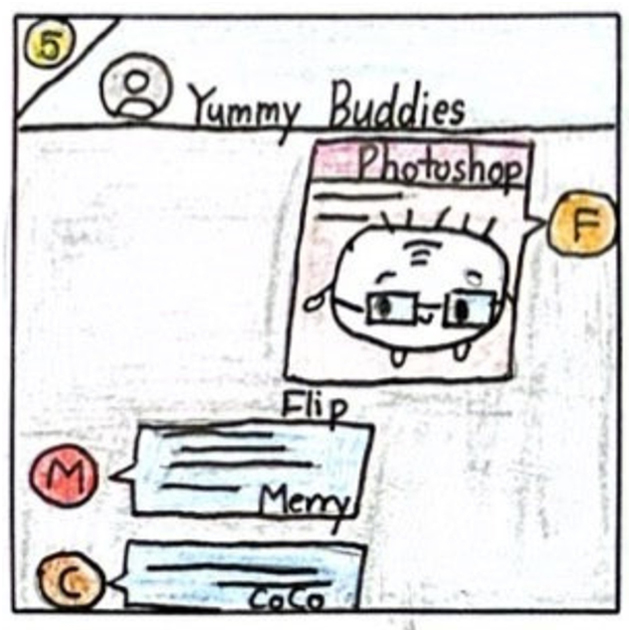 5
Yummy Buddies
Photoshop
F
Flip
M
Merry
C
CoCo